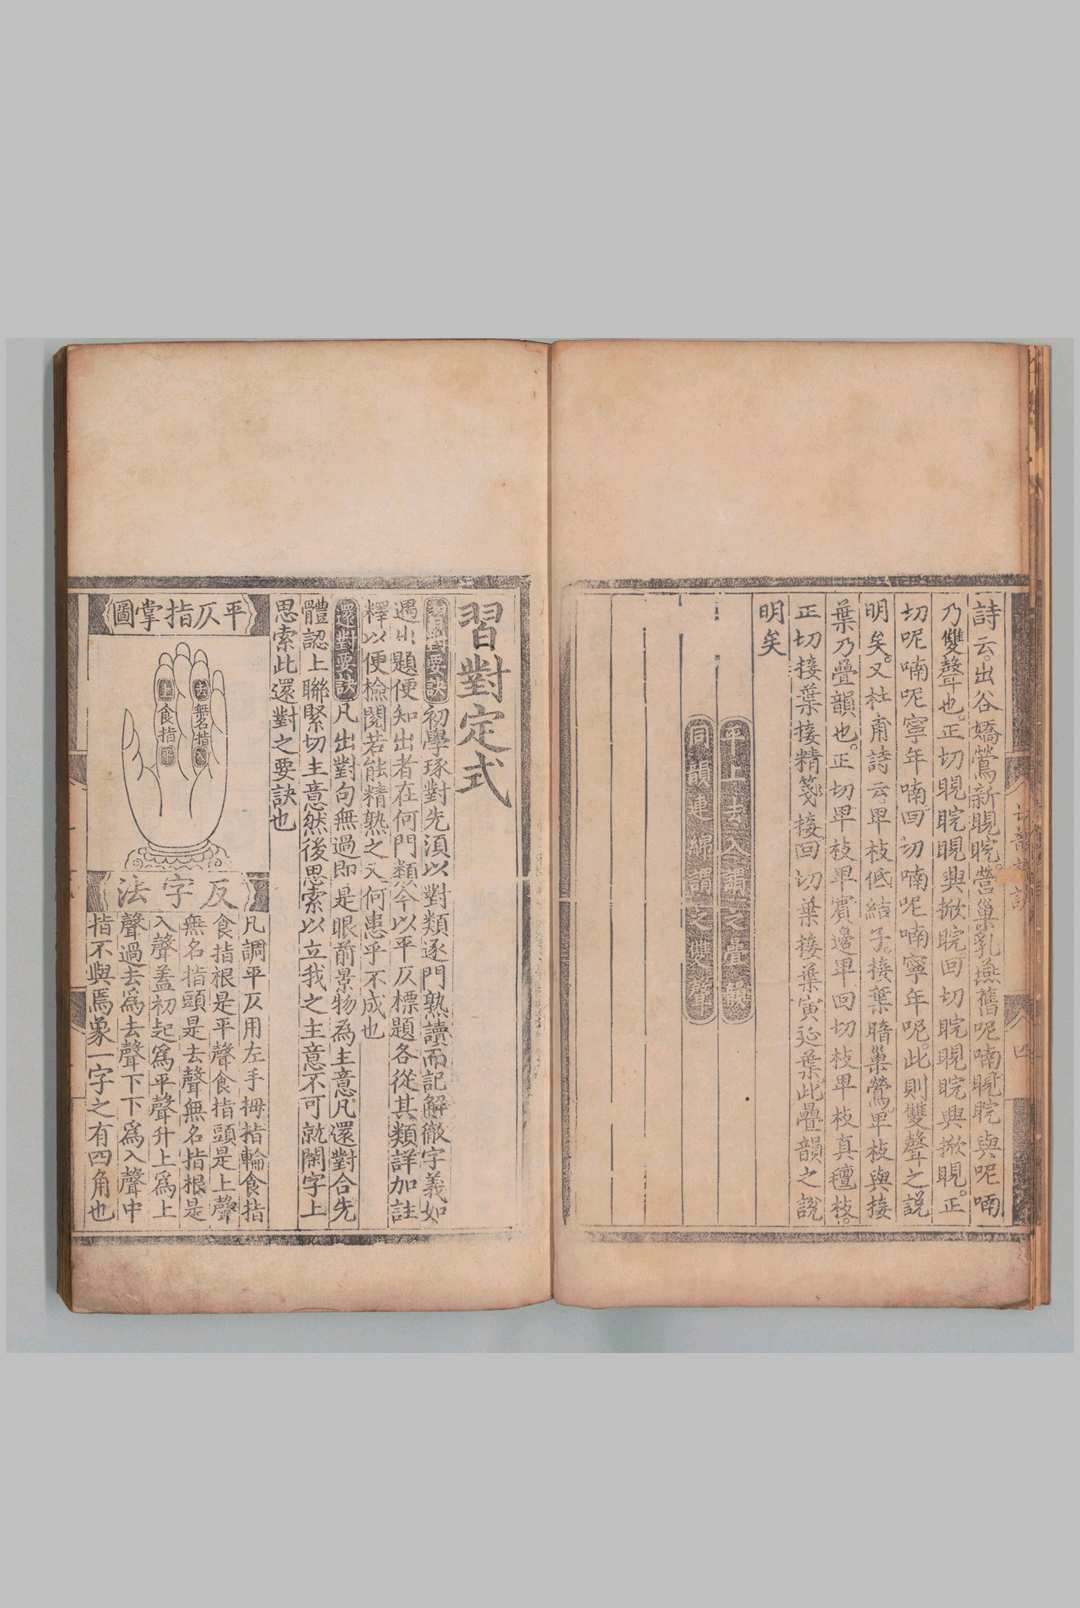 詩云出谷嬌鶯新睍睆。營巢乳燕舊呢喃睍睆與呢喃
乃雙聲也。正切睍睆睍與掀睆回切睆睍睆與掀睍。正
切呢喃呢寧年喃回切喃呢喃寧年呢。此則雙聲之説
明矣。又杜甫詩云卑枝低結子。接葉暗巢鶯。卑枝與接
葉乃疊韻也。正切卑枝卑賓邊卑回切枝卑枝真氊枝。
正切接葉接精箋接回切葉接葉寅延葉此疊韻之說
明矣
平上去入謂之疊韻
同韻連綿謂之雙聲
四
習對定式
習對要訣初學琢對先須以對類逐門熟讀而記解徹字義如
遇出題便知出者在何門類今以平仄標題各從其類詳加註
釋以便檢閱若能精熟之又何患乎不成也
還對要訣凡出對句無過即是眼前景物為主意凡還對合先
體認上聯緊切主意然後思索以立我之主意不可就閑字上
思索此還對之要訣也
平仄指掌圖
去 無名指 入
上 食指 平
反字法
凡調平仄用左手拇指輪食指
食指根是平聲食指頭是上聲
無名指頭是去聲無名指根是
入聲蓋初起爲平聲升上爲上
聲過去爲去聲下下爲入聲中
指不與焉象一字之有四角也